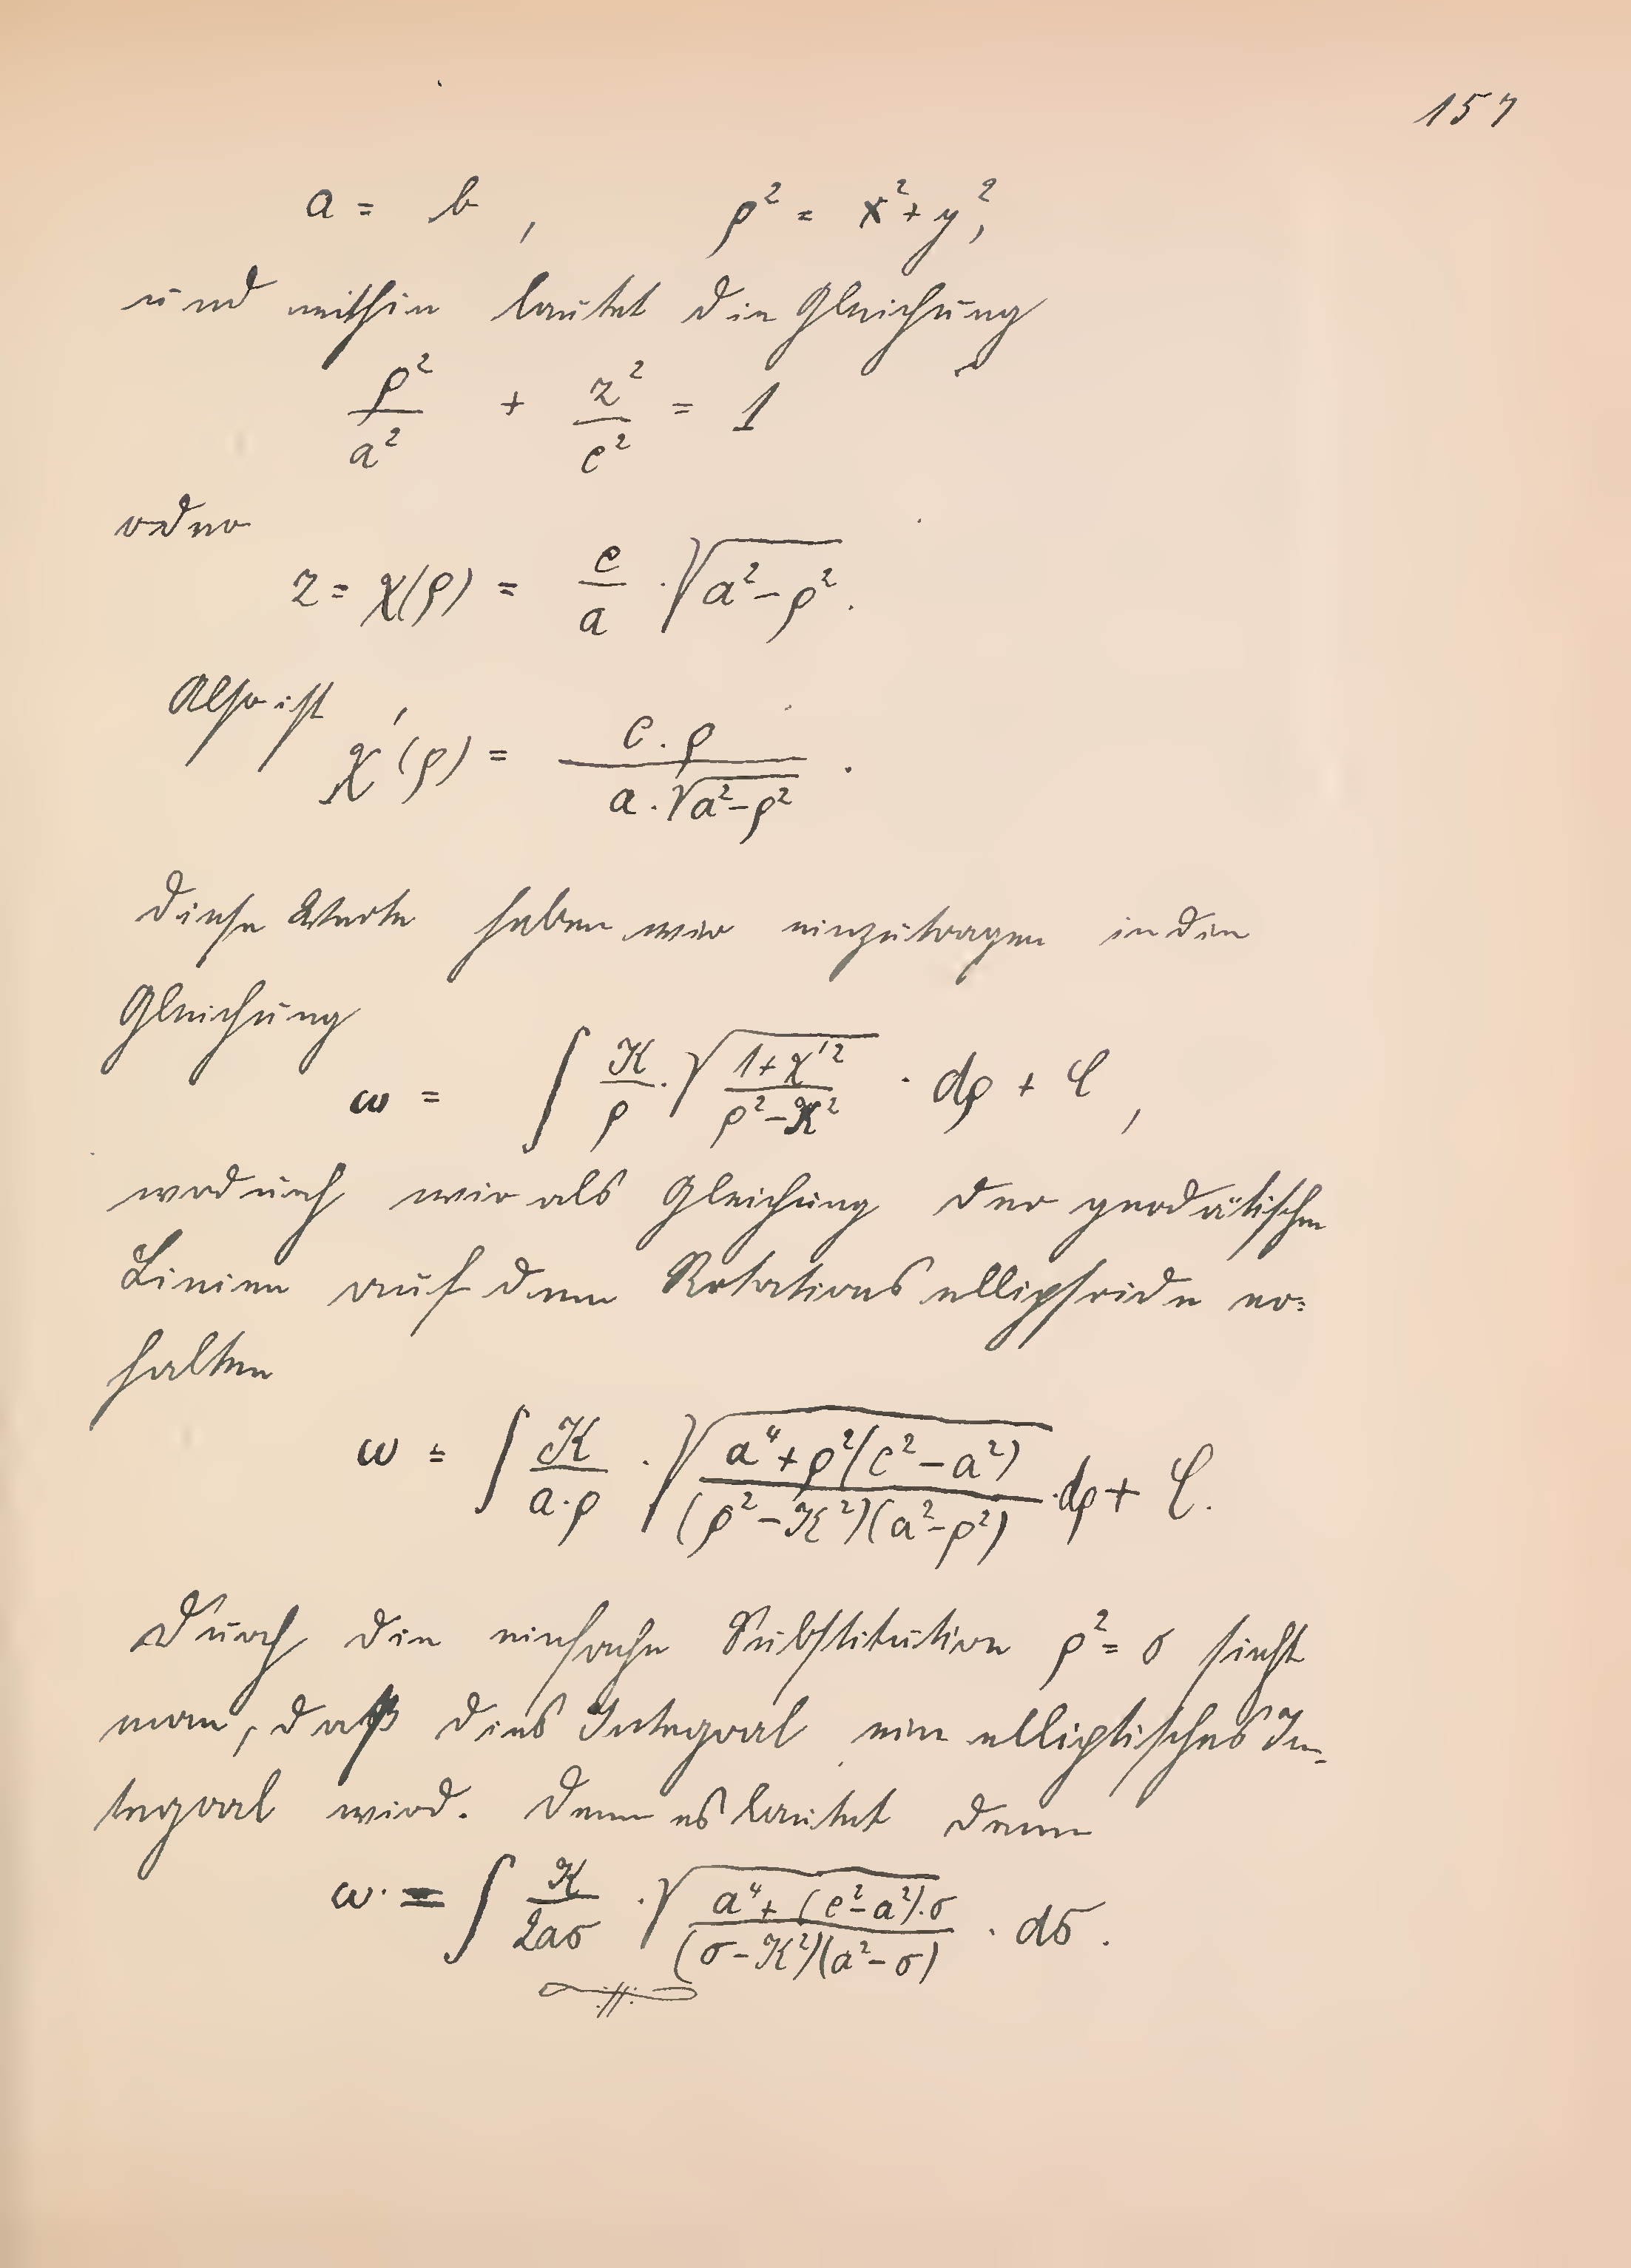 157
a = b , ρ² = x² + y²,
und mithin lautet die Gleichung
ρ²/a² + z²/c² = 1
oder
z = χ(ρ) = c/a · √(a² − ρ²).
Also ist
χ'(ρ) = c · ρ / (a · √(a² − ρ²)) .
Diese Werte haben wir einzutragen in die
Gleichung
ω = ∫ K/ρ · √((1 + χ'²)/(ρ² − K²)) · dρ + C ,
wodurch wir als Gleichung der geodätischen
Linien auf dem Rotationsellipsoide er=
halten
ω = ∫ K/(a·ρ) · √((a⁴ + ρ²(c² − a²))/((ρ² − K²)(a² − ρ²))) · dρ + C.
Durch die einfache Substitution ρ² = σ sieht
man, daß dies Integral ein elliptisches In=
tegral wird. Denn es lautet dann
ω = ∫ K/(2aσ) · √((a⁴ + (c² − a²)·σ)/((σ − K²)(a² − σ))) · dσ .